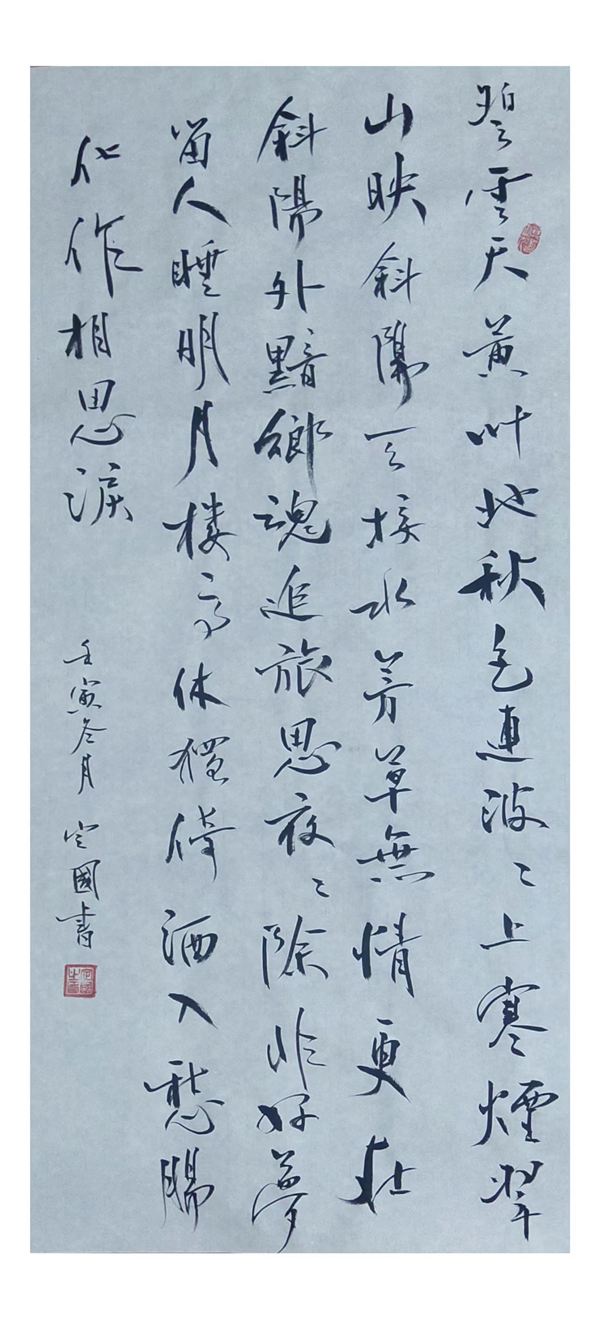 碧雲天黃叶地秋色連波〻上寒煙翠
山映斜陽天接水芳草無情更在
斜陽外黯鄉魂追旅思夜〻除非好夢
留人睡明月楼高休獨倚酒入愁腸
化作相思淚
壬寅冬月定國書